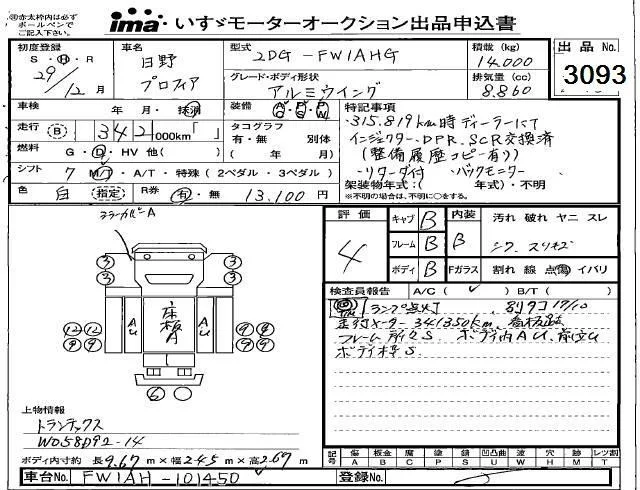 ㊟赤太枠内は必ず
ボールペンで
ご記入下さい。
ima いすゞモーターオークション出品申込書
初度登録
S・H・R
29/12 月
車名
日野
プロフィア
型式
2DG-FW1AHG
グレード・ボディ形状
アルミウイング
積載 (kg)
14.000
排気量 (cc)
8.860
出品 No.
3093
車検 年・月・抹消
装備
走行 (B) 342 000km
タコグラフ
有・無 別体
( 年 月)
燃料 G・D・HV 他( )
シフト 7 M/T・A/T・特殊 (2ペダル・3ペダル)
色 白 (指定)
R券 有・無 13,100 円
特記事項
・315.819km時ディーラーにて
インジェクター、DPR、SCR交換済
(整備履歴コピー有り)
・リターダ付 ・バックモニター
架装物年式:( 年式)・不明
※不明の場合は、不明に○をする。
ミラーカバーA
3 3
3 3
床板A
AU AU
12 12 9 9
9 9 9 9
6
評価
4
キャブ B
フレーム B
ボディ B
内装 B
Fガラス
汚れ 破れ ヤニ スレ
シワ・スリキズ
割れ 線 点 傷 イバリ
検査員報告 A/C( ✓ ) B/T( )
ランプ点灯
走行メーター341350km、
フレーム前2S ボディ内AU、
ボディ枠S
上物情報
トランテックス
W058D92-14
ボディ内寸約 長9.67m×幅2.45m×高2.67m
記号 傷 板金 腐 塗 錆 凹凸曲 波 穴 歪 要 レツ割
A B C P S U W H M X T
車台No. FW1AH-101450
登録No.